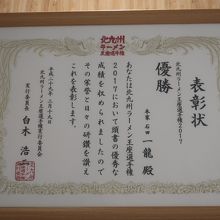 北九州
ラーメン
王座選手権
表彰状
北九州ラーメン王座選手権2017
優勝
本家 石田一龍 殿
あなたは北九州ラーメン王座選手権
2017において頭書の優秀な
成績を収められましたので
その栄誉と日々の研鑽を讃え
これを表彰します。
平成二十九年三月十九日
北九州ラーメン王座選手権実行委員会
実行委員長 白木 浩